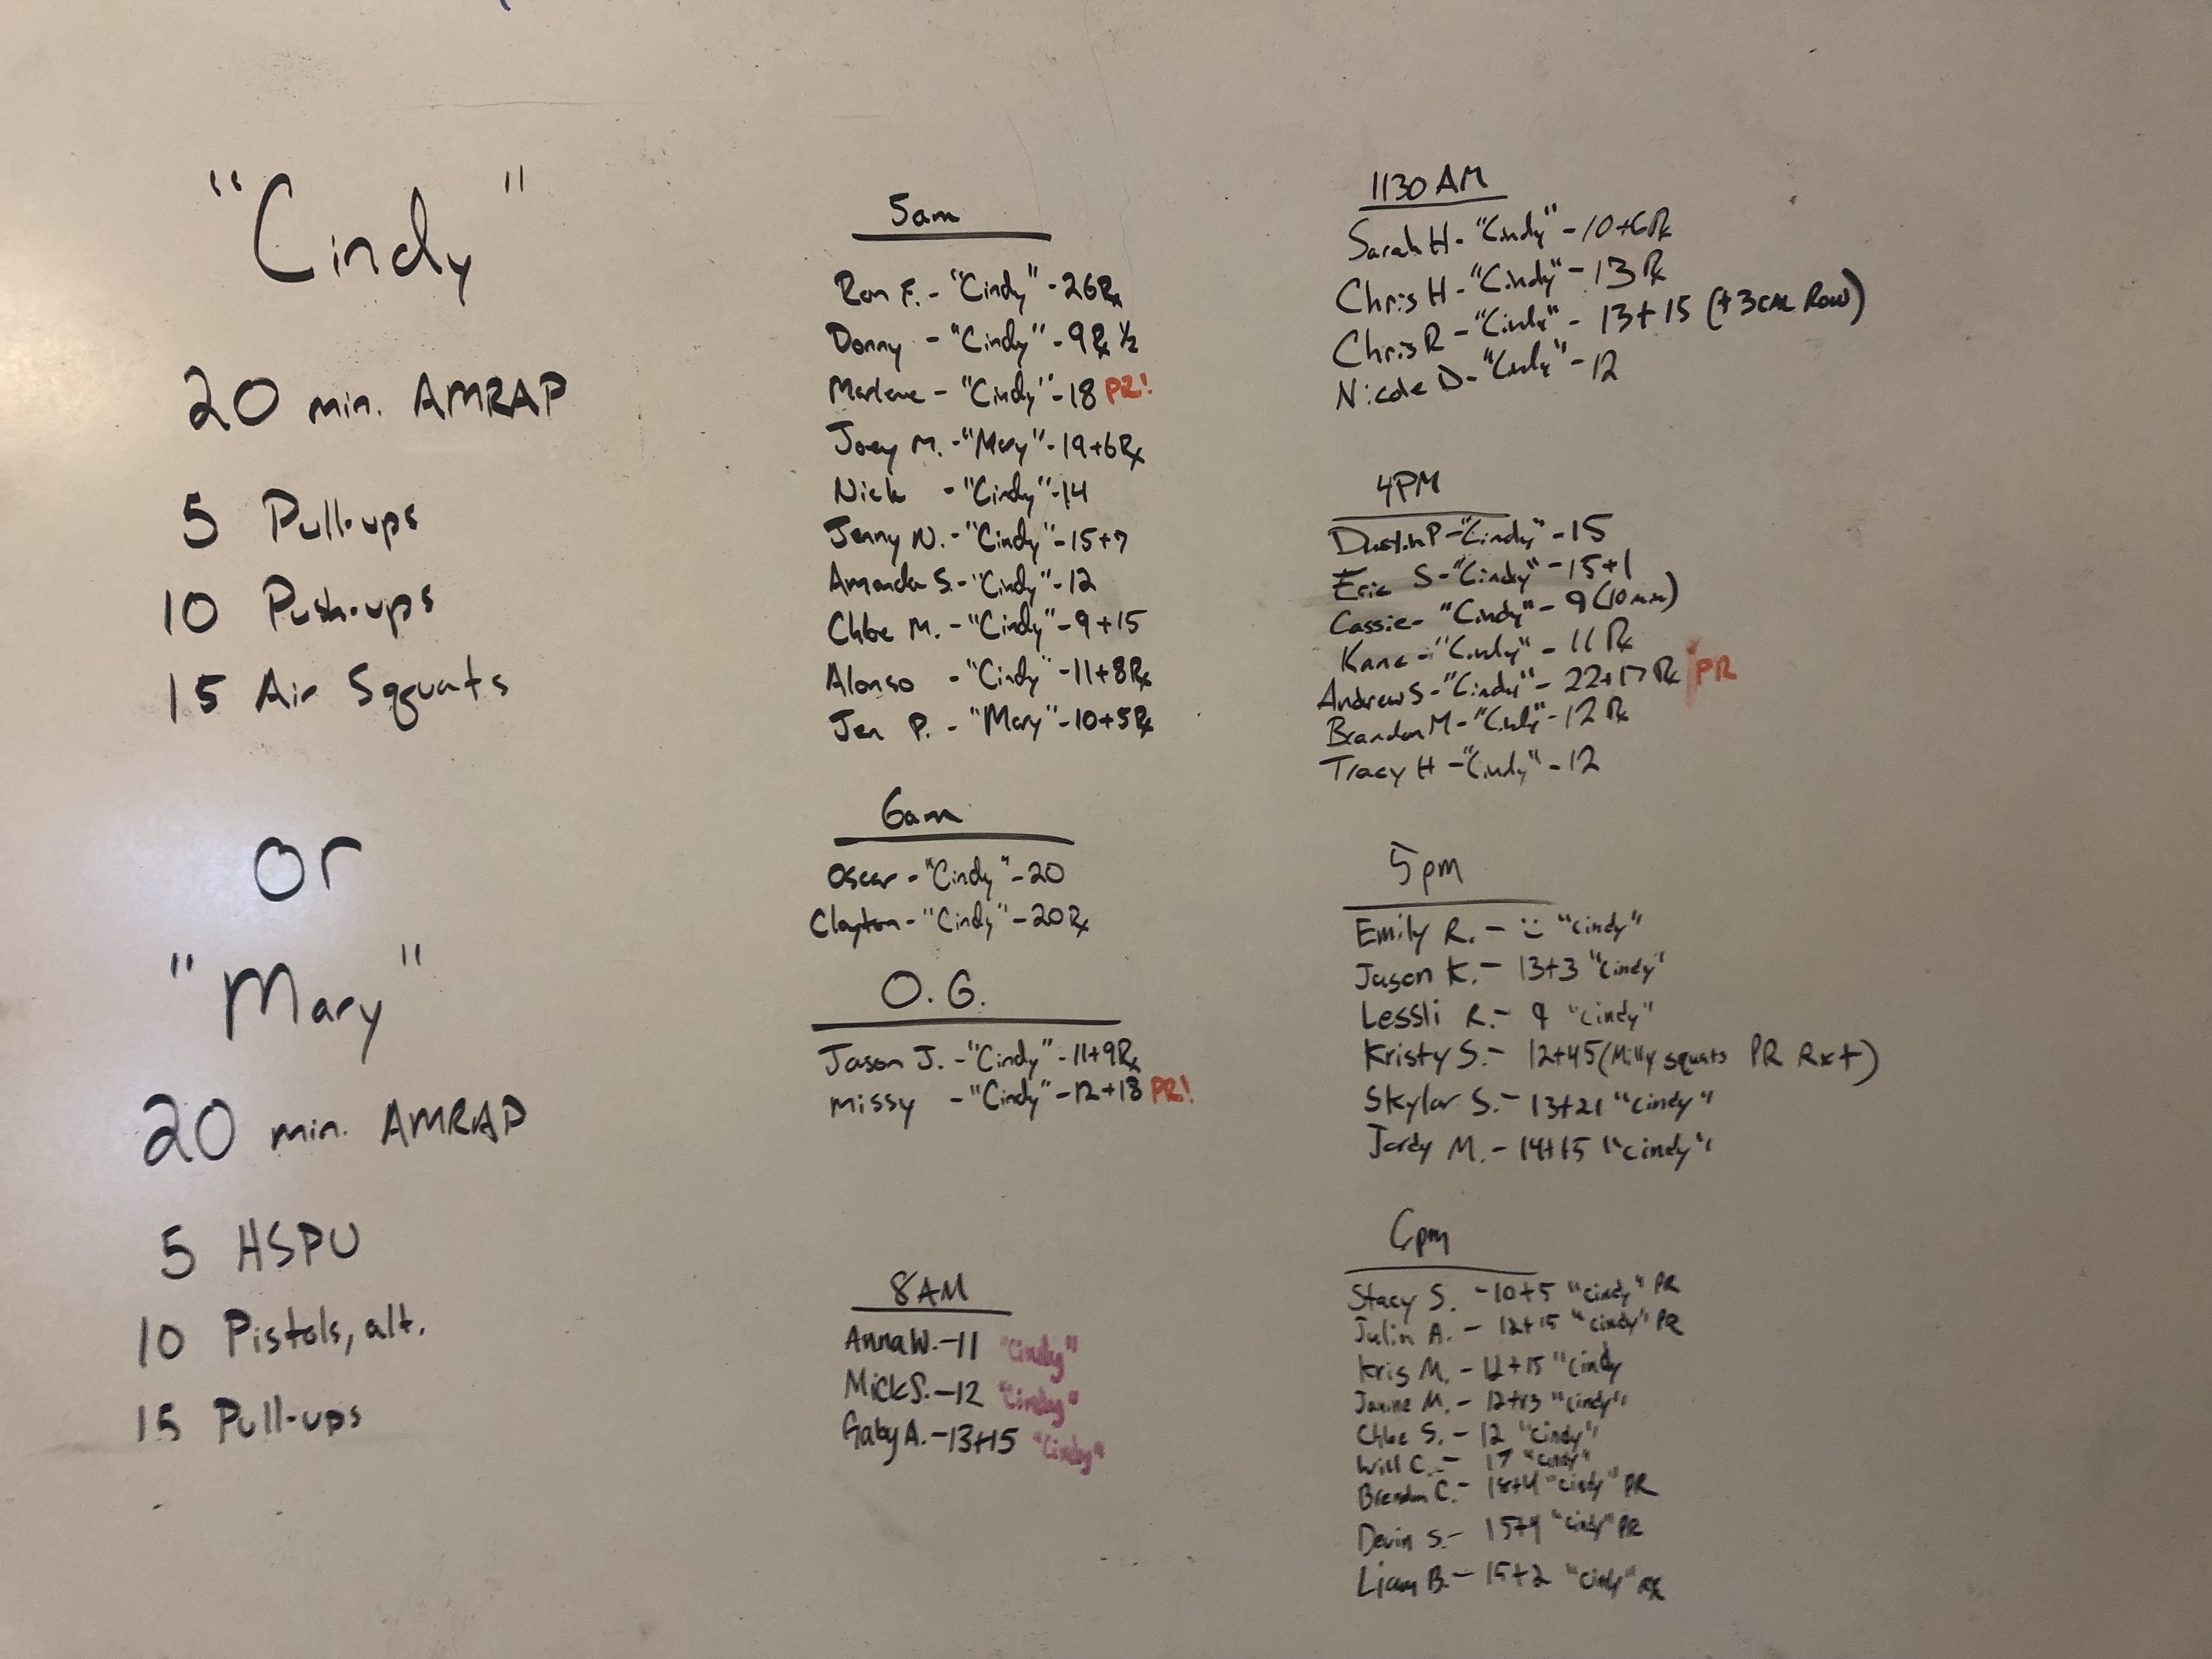 "Cindy"
20 min. AMRAP
5 Pull-ups
10 Push-ups
15 Air Squats
or
"Mary"
20 min. AMRAP
5 HSPU
10 Pistols, alt.
15 Pull-ups
5am
Ron F. - "Cindy" - 26 Rx
Donny - "Cindy" - 9 Rx 1/2
Marlene - "Cindy" - 18 PR!
Joey M. - "Mary" - 19+6 Rx
Nick - "Cindy" - 14
Jenny N. - "Cindy" - 15+7
Amanda S. - "Cindy" - 12
Chloe M. - "Cindy" - 9+15
Alonso - "Cindy" - 11+8 Rx
Jen P. - "Mary" - 10+5 Rx
6am
Oscar - "Cindy" - 20
Clayton - "Cindy" - 20 Rx
O.G.
Jason J. - "Cindy" - 11+9 Rx
Missy - "Cindy" - 12+18 PR!
8AM
Anna W. - 11 "Cindy"
Mick S. - 12 "Cindy"
Gaby A. - 13+15 "Cindy"
1130 AM
Sarah H - "Cindy" - 10+6 Rx
Chris H - "Cindy" - 13 Rx
Chris R - "Cindy" - 13+15 (+3 CAL Row)
Nicole D - "Cindy" - 12
4PM
Dustin P - "Cindy" - 15
Eric S - "Cindy" - 15+1
Cassie - "Cindy" - 9 (10 min)
Kane - "Cindy" - 11 Rx
Andrew S - "Cindy" - 22+17 Rx PR
Brandon M - "Cindy" - 12 Rx
Tracy H - "Cindy" - 12
5pm
Emily R. - "Cindy"
Jason K. - 13+3 "Cindy"
Lessli R. - 9 "Cindy"
Kristy S. - 12+45 (Milly squats PR Rx+)
Skylar S. - 13+21 "Cindy"
Jordy M. - 14+15 "Cindy"
6pm
Stacy S. - 10+5 "Cindy" PR
Julin A. - 12+15 "Cindy" PR
Kris M. - +15 "Cindy
Janine M. - 12+13 "Cindy"
Chloe S. - 12 "Cindy"
Will C. - 17 "Cindy"
Brendon C. - "Cindy" PR
Devin S. - "Cindy" PR
Liam B. - 15+2 "Cindy" Rx